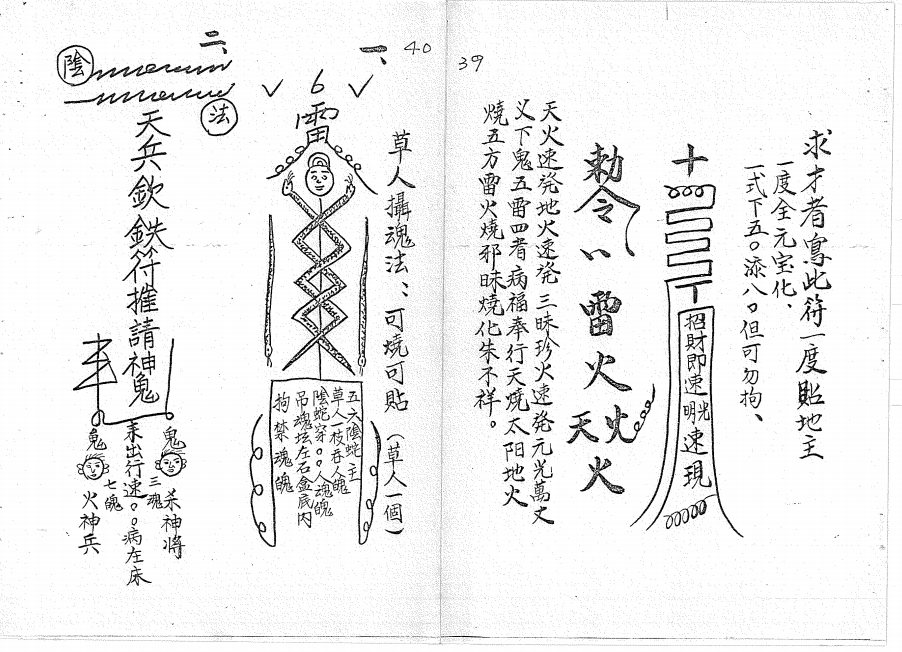 39
求才者寫此符一度貼地主
一度全元宝化、
一式下五〇添八〇但可勿拘、
招財即速明光速現
勅令八雷火火
天火
天火速発地火速発三昧珍火速発元光萬丈
义下鬼五雷四者病福奉行天燒太阳地火
燒五方雷火燒邪昧燒化朱不祥。
40
一、
草人攝魂法：可燒可貼（草人一個）
6
雷
五六陰蛇主
草人一枝吞人魄
陰蛇穿〇〇人魂魄
吊魂坛左石盒底内
拘禁魂魄
二、
陰
法
天兵欽鉄符推請神鬼
鬼
三魂
杀神将
耒出行速〇〇病在床
鬼
七魄
火神兵